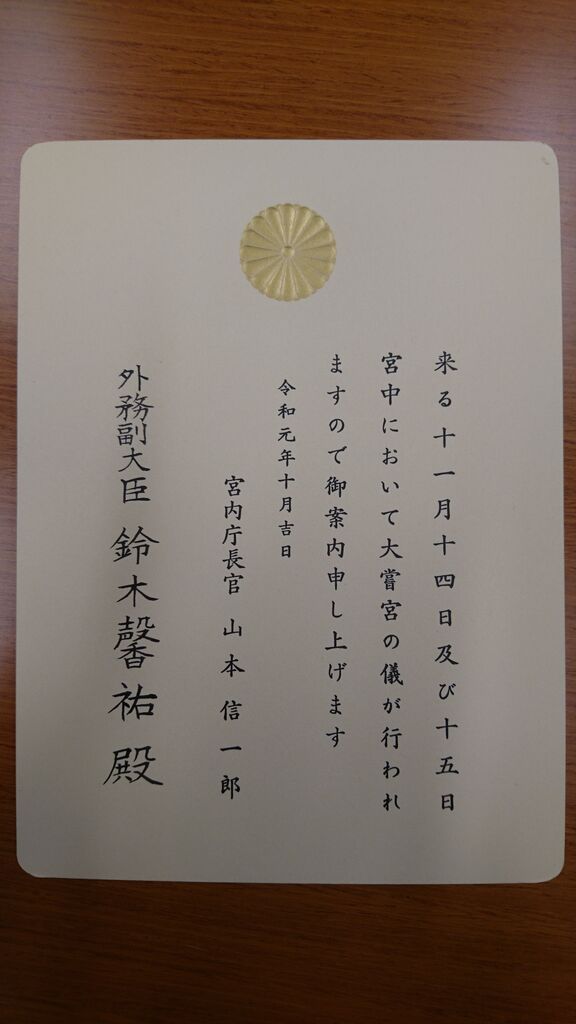 来る十一月十四日及び十五日
宮中において大嘗宮の儀が行われ
ますので御案内申し上げます
令和元年十月吉日
宮内庁長官 山本信一郎
外務副大臣 鈴木馨祐殿